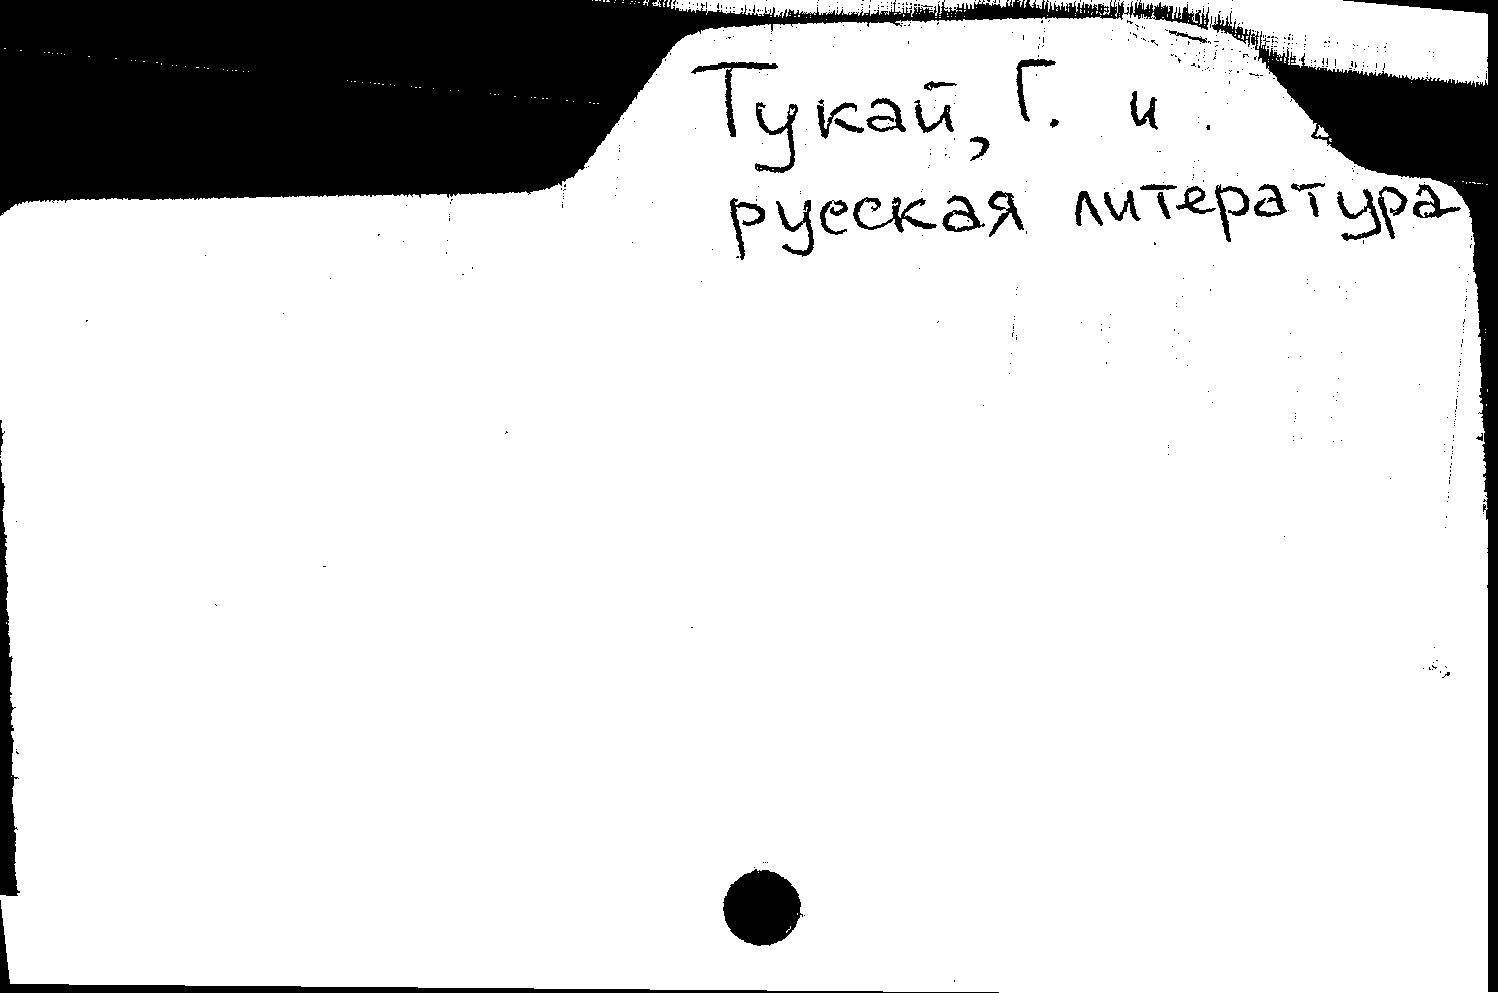 Тукай, Г. и
русская литература